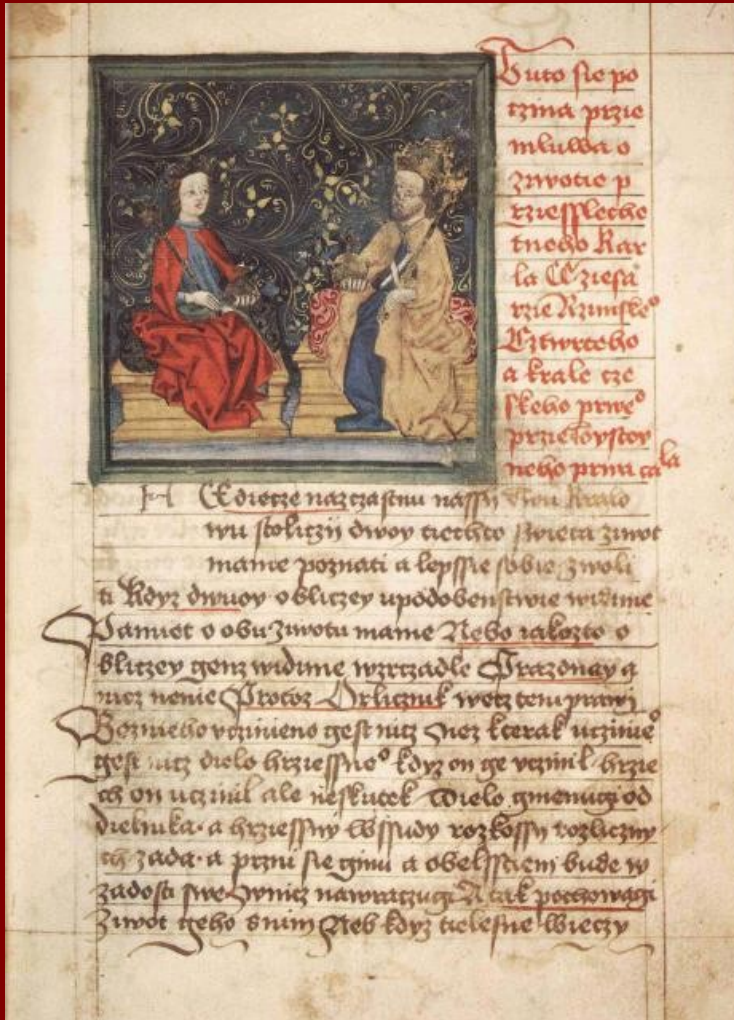 Tuto sie po
czina przie
mluwa o
ziwotie p
rziessleche
tneho Kar
la Cziesa
rzie Rzimske⁰
Cztwrteho
a krale cze
skeho prwe⁰
przielozystoy
neho prwa ca la
wu stoliczij dwoy tiechto swieta ziwot
mame poznati a lepssie sobie zwoli
ti Kdyz dwuoy obliczey upodobenstwie widime
Pamiet o obu ziwotu mame Nebo iakozto o
bliczey genz widime wzrczadle Prazdnay a
nicz nenie
Bez nieho vczinieno gest nicz Nez kterak uczinie⁰
gest nicz dielo hrziessne⁰ kdyz on ge vczinil hrzie
ch on uczinil ale neskutek Dielo gmenugi od
dielnika. a hrziessny wssudy rozkossy rozliczny
ch zada. a przni sie ginu a obelsstiem bude w
zadosti swe Wnicz nawraczugi A tak pochowagi
ziwot geho snim Neb kdyz tielesne wieczy